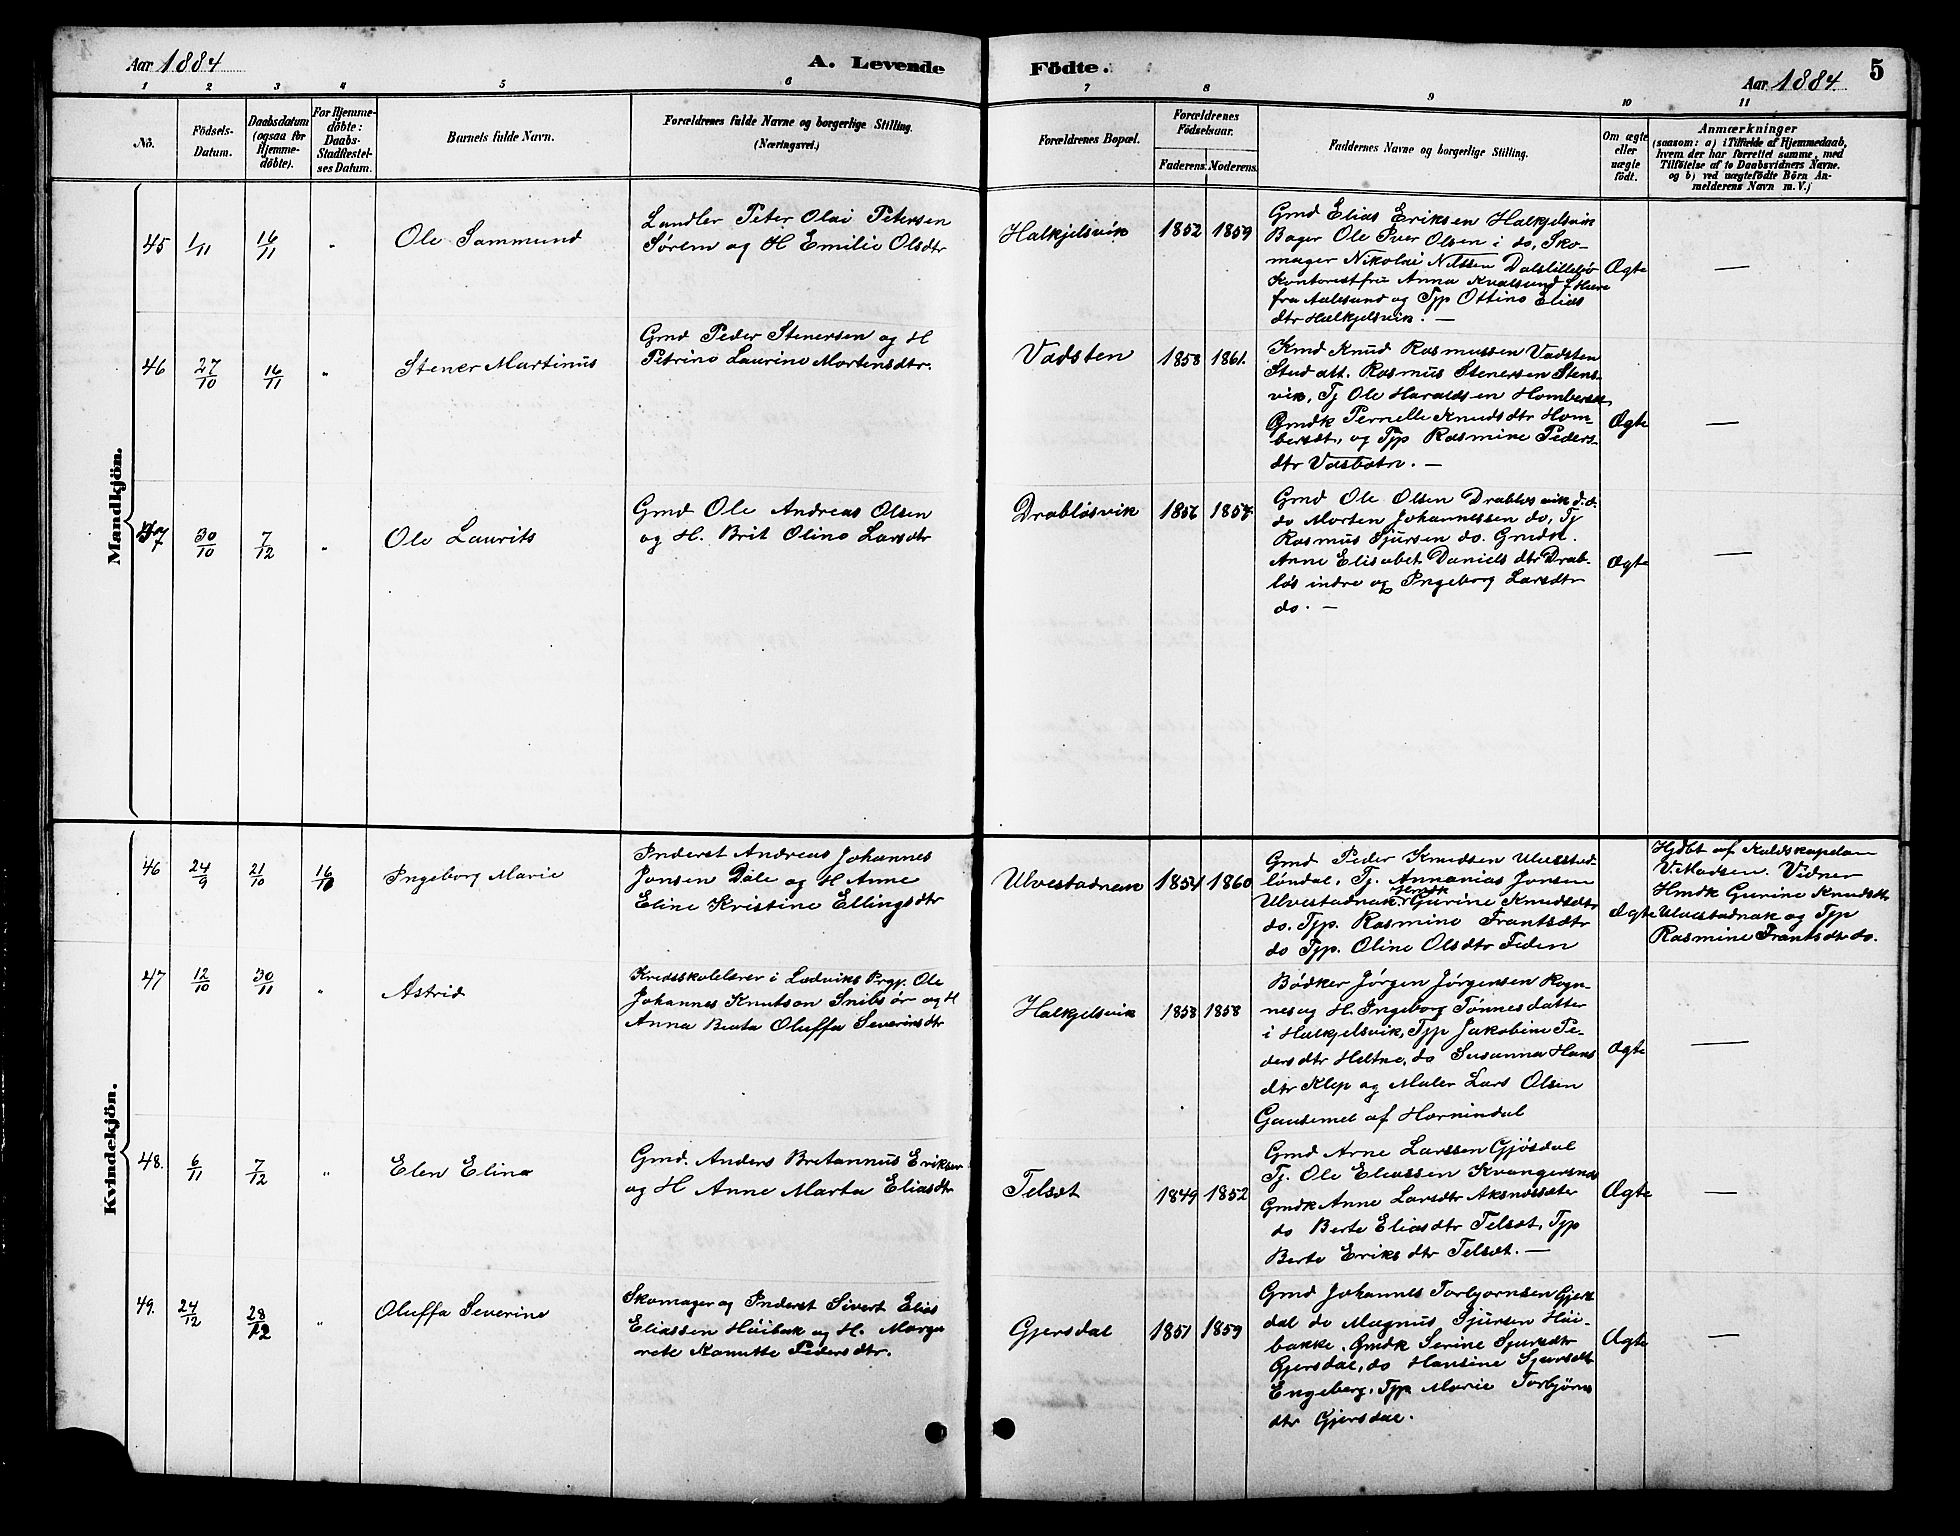 Aar 1884
A. Levende
Födte.
Aar 1884.
5
1 2 3 4 5 6 7 8 9 10 11
No.
Födsels-
Datum.
Daabsdatum
(ogsaa for
Hjemme-
döbte).
For Hjemme-
döbte:
Daabs-
Stadfæstel-
ses Datum.
Barnets fulde Navn.
Forældrenes fulde Navne og borgerlige Stilling.
(Næringsvei.)
Forældrenes Bopæl.
Forældrenes
Födselsaar.
Faderens. Moderens.
Faddernes Navne og borgerlige Stilling.
Om ægte
eller
uægte
födt.
Anmærkninger
(saasom: a) i Tilfælde af Hjemmedaab,
hvem der har forrettet samme, med
Tilföielse af to Daabsvidners Navne.
og b) ved uægtefödte Börn An-
melderens Navn m. V.)
Mandkjön.
45 1/11 16/11 "
Ole Sammund
Landler Peter Olai Petersen
Sørem og H Emilie Olsdtr
Halkjelsvik 1852 1859
Gmd Elias Eriksen Halkjelsvik
Bager Ole Iver Olsen i do, Sko-
mager Nikolai Nilssen Dalslilleløv
Kontoristfru Anna Kvalsund f Huse
fra Aalesund og Typ Ottine Elias
dtr Halkjelsvik. —
Ægte —
46 27/10 16/11 "
Stener Martinus
Gmd Peder Stenersen og H
Petrine Laurine Mortensdtr.
Vadsten 1858 1861.
Kmd Knud Rasmussen Vadsten
Stud art. Rasmus Stenersen Stens-
vik, Tj Ole Haraldsen Homberset,
Gmdk Pernelle Knudsdtr Hom-
berset, og Typ Rasmine Peders-
dtr Vasbotn. —
Ægte —
47 30/10 7/12 "
Ole Laurits
Gmd Ole Andreas Olsen
og H. Brit Oline Larsdtr
Drabløsvik 1856 1857
Gmd Ole Olsen Drabløsvik d. d.
do Morten Johannessen do, Tj
Rasmus Sjursen do. Gmdk.
Anne Elisabet Daniels dtr Drab-
løs indre og Ingeborg Larsdtr
do. —
Ægte —
Kvindekjön.
46 24/9 21/10 16/10
Ingeborg Marie
Inderst Andreas Johannes
Jonsen Dale og H Anne
Eline Kristine Ellingsdtr
Ulvestadnak 1854 1860
Gmd Peder Knudsen Ulvestad-
løndal, Tj. Annanias Jonsen
Ulvestadnak, Hmdk Gurine Knudsdtr
do. Typ. Rasmine Frantsdtr
do Typ. Oline Olsdtr Feden
Ægte
Hjdbt af Kaldskapelan
V. Madsen. Vidner
Hmdk Gurine Knudsdtr
Ulvestadnak og Typ
Rasmine Frantsdtr do.
47 12/10 30/11 "
Astrid
Kredsskolelærer i Ledviks Prgj. Ole
Johannes Knutson Snibsør og H
Anna Berta Oluffa Severinsdtr
Halkjelsvik 1858 1858
Bødker Jørgen Jørgensen Rogn-
nes og H. Ingeborg Tønnesdatter
i Halkjelsvik, Typ Jakobine Pe-
dersdtr Heltne, do Susanna Hans
dtr Klep og Maler Lars Olsen
Gausemel af Hornindal
Ægte —
48. 6/11 7/12 "
Elen Elina
Gmd. Anders Bretannus Eriksen
og H Anne Marta Eliasdtr
Telset 1849 1852
Gmd Arne Larssen Gjøsdal
Tj. Ole Eliassen Kvangersnes
Gmdk Anne Larsdtr Aksnessæter
do Berte Eliasdtr Telset, Typ
Berte Eriks dtr Telset. —
Ægte —
49. 24/12 28/12 "
Oluffa Severine
Skomager og Inderst Sivert Elias
Eliassen Høibak og H. Margre
rete Kanutte Pedersdtr.
Gjersdal 1851 1859
Gmd Johannes Torbjørnsen Gjers
dal do Magnus Sjursen Høi-
bakke, Gmdk Serine Sjursdtr
Gjersdal, do Hansine Sjursdtr
Engeberg, Typ Marie Torbjørns
dtr Gjersdal.
Ægte —